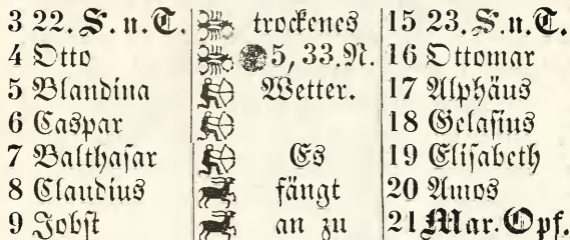 3 22. S. n. T. trockenes 15 23. S. n. T.
4 Otto 5, 33. N. 16 Ottomar
5 Blandina Wetter. 17 Alphäus
6 Caspar 18 Gelasius
7 Balthasar Es 19 Elisabeth
8 Claudius fängt 20 Amos
9 Jobst an zu 21 Mar. Opf.